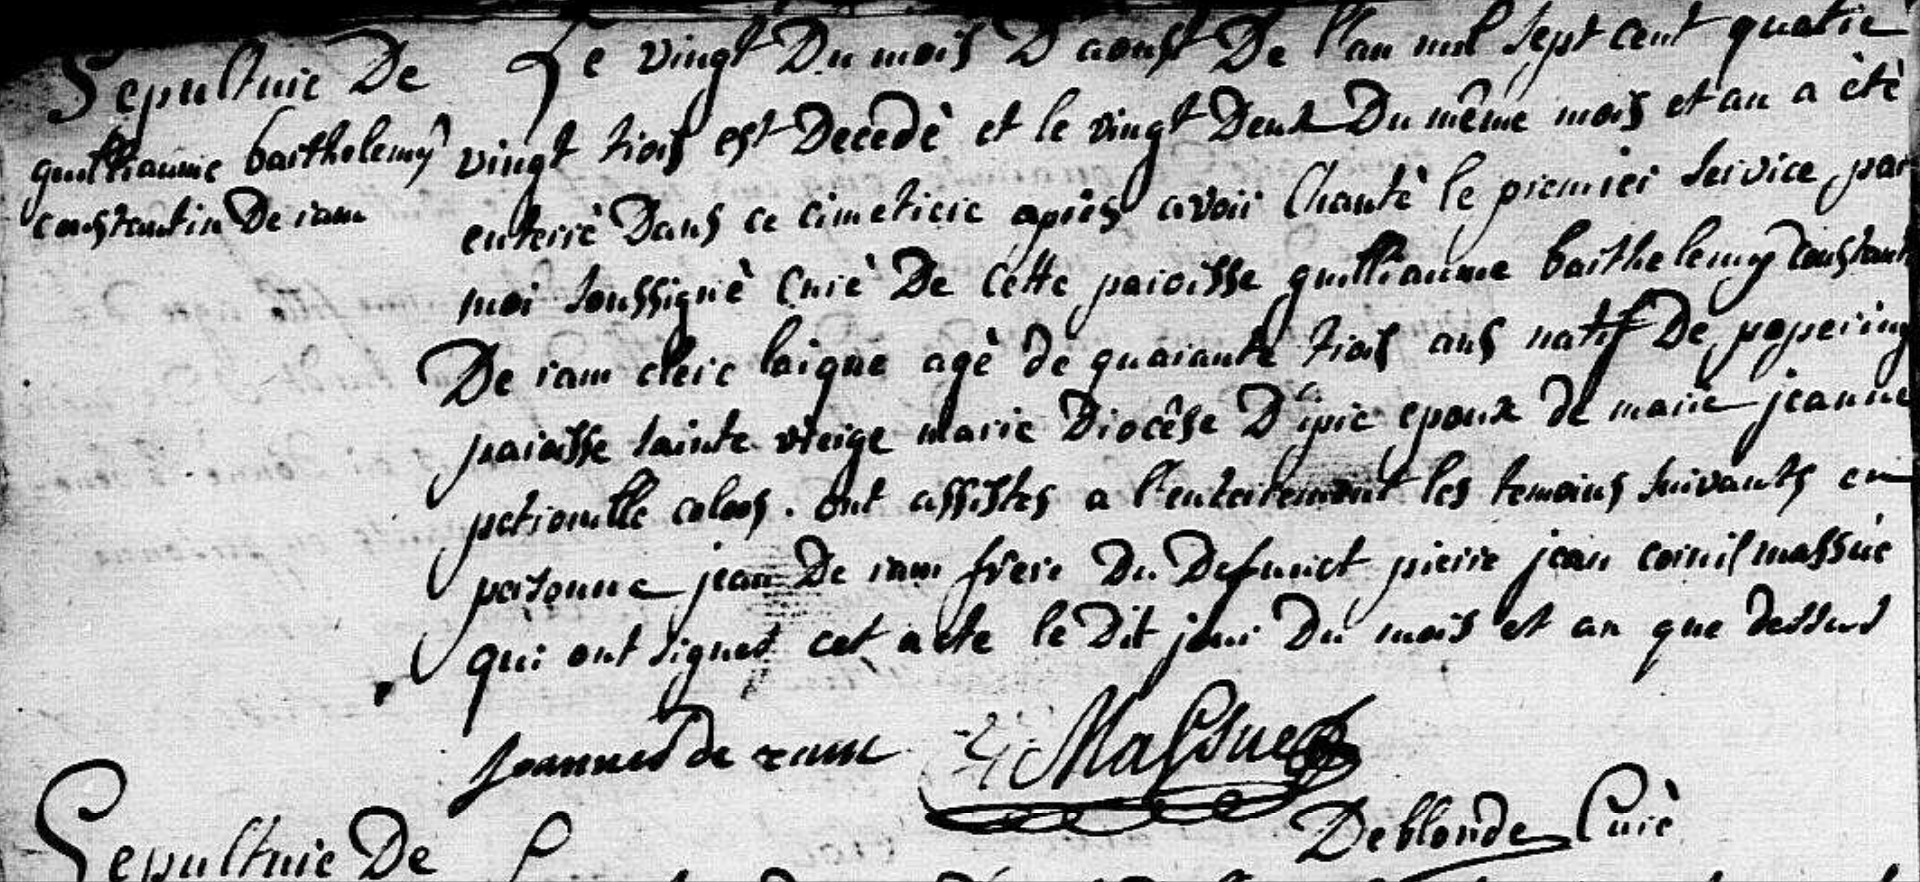 Sepulture De
guilliaume barthelemÿ
constantin De ram
Le vingt Du mois D'aoust De l'an mil sept cent quatre
vingt trois est Decedè et le vingt Deux Du même mois et an a ètè
enterrè Dans ce cimetiere après avoir Chantè le premier service par
moi soussignè Curè De cette paroisse guilliaume barthelemÿ constantin
De ram clerc laique agè de quarante trois ans natif De popering
paroisse sainte vierge marie Diocêse D'ipre epoux de marie jeanne
petronille . ont assistes a l'enterrement les temoins suivants en
personne jean De ram frere Du Defunct pierre jean cornil massue
qui ont signes cet acte le Dit jour Du mois et an que dessus
Joannes de ram Massue
Deblonde Curè
Sepulture De